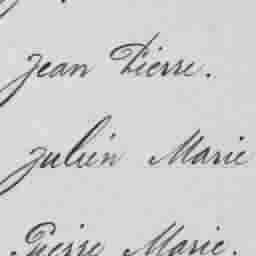 Jean Pierre.
Julien Marie
Pierre Marie.